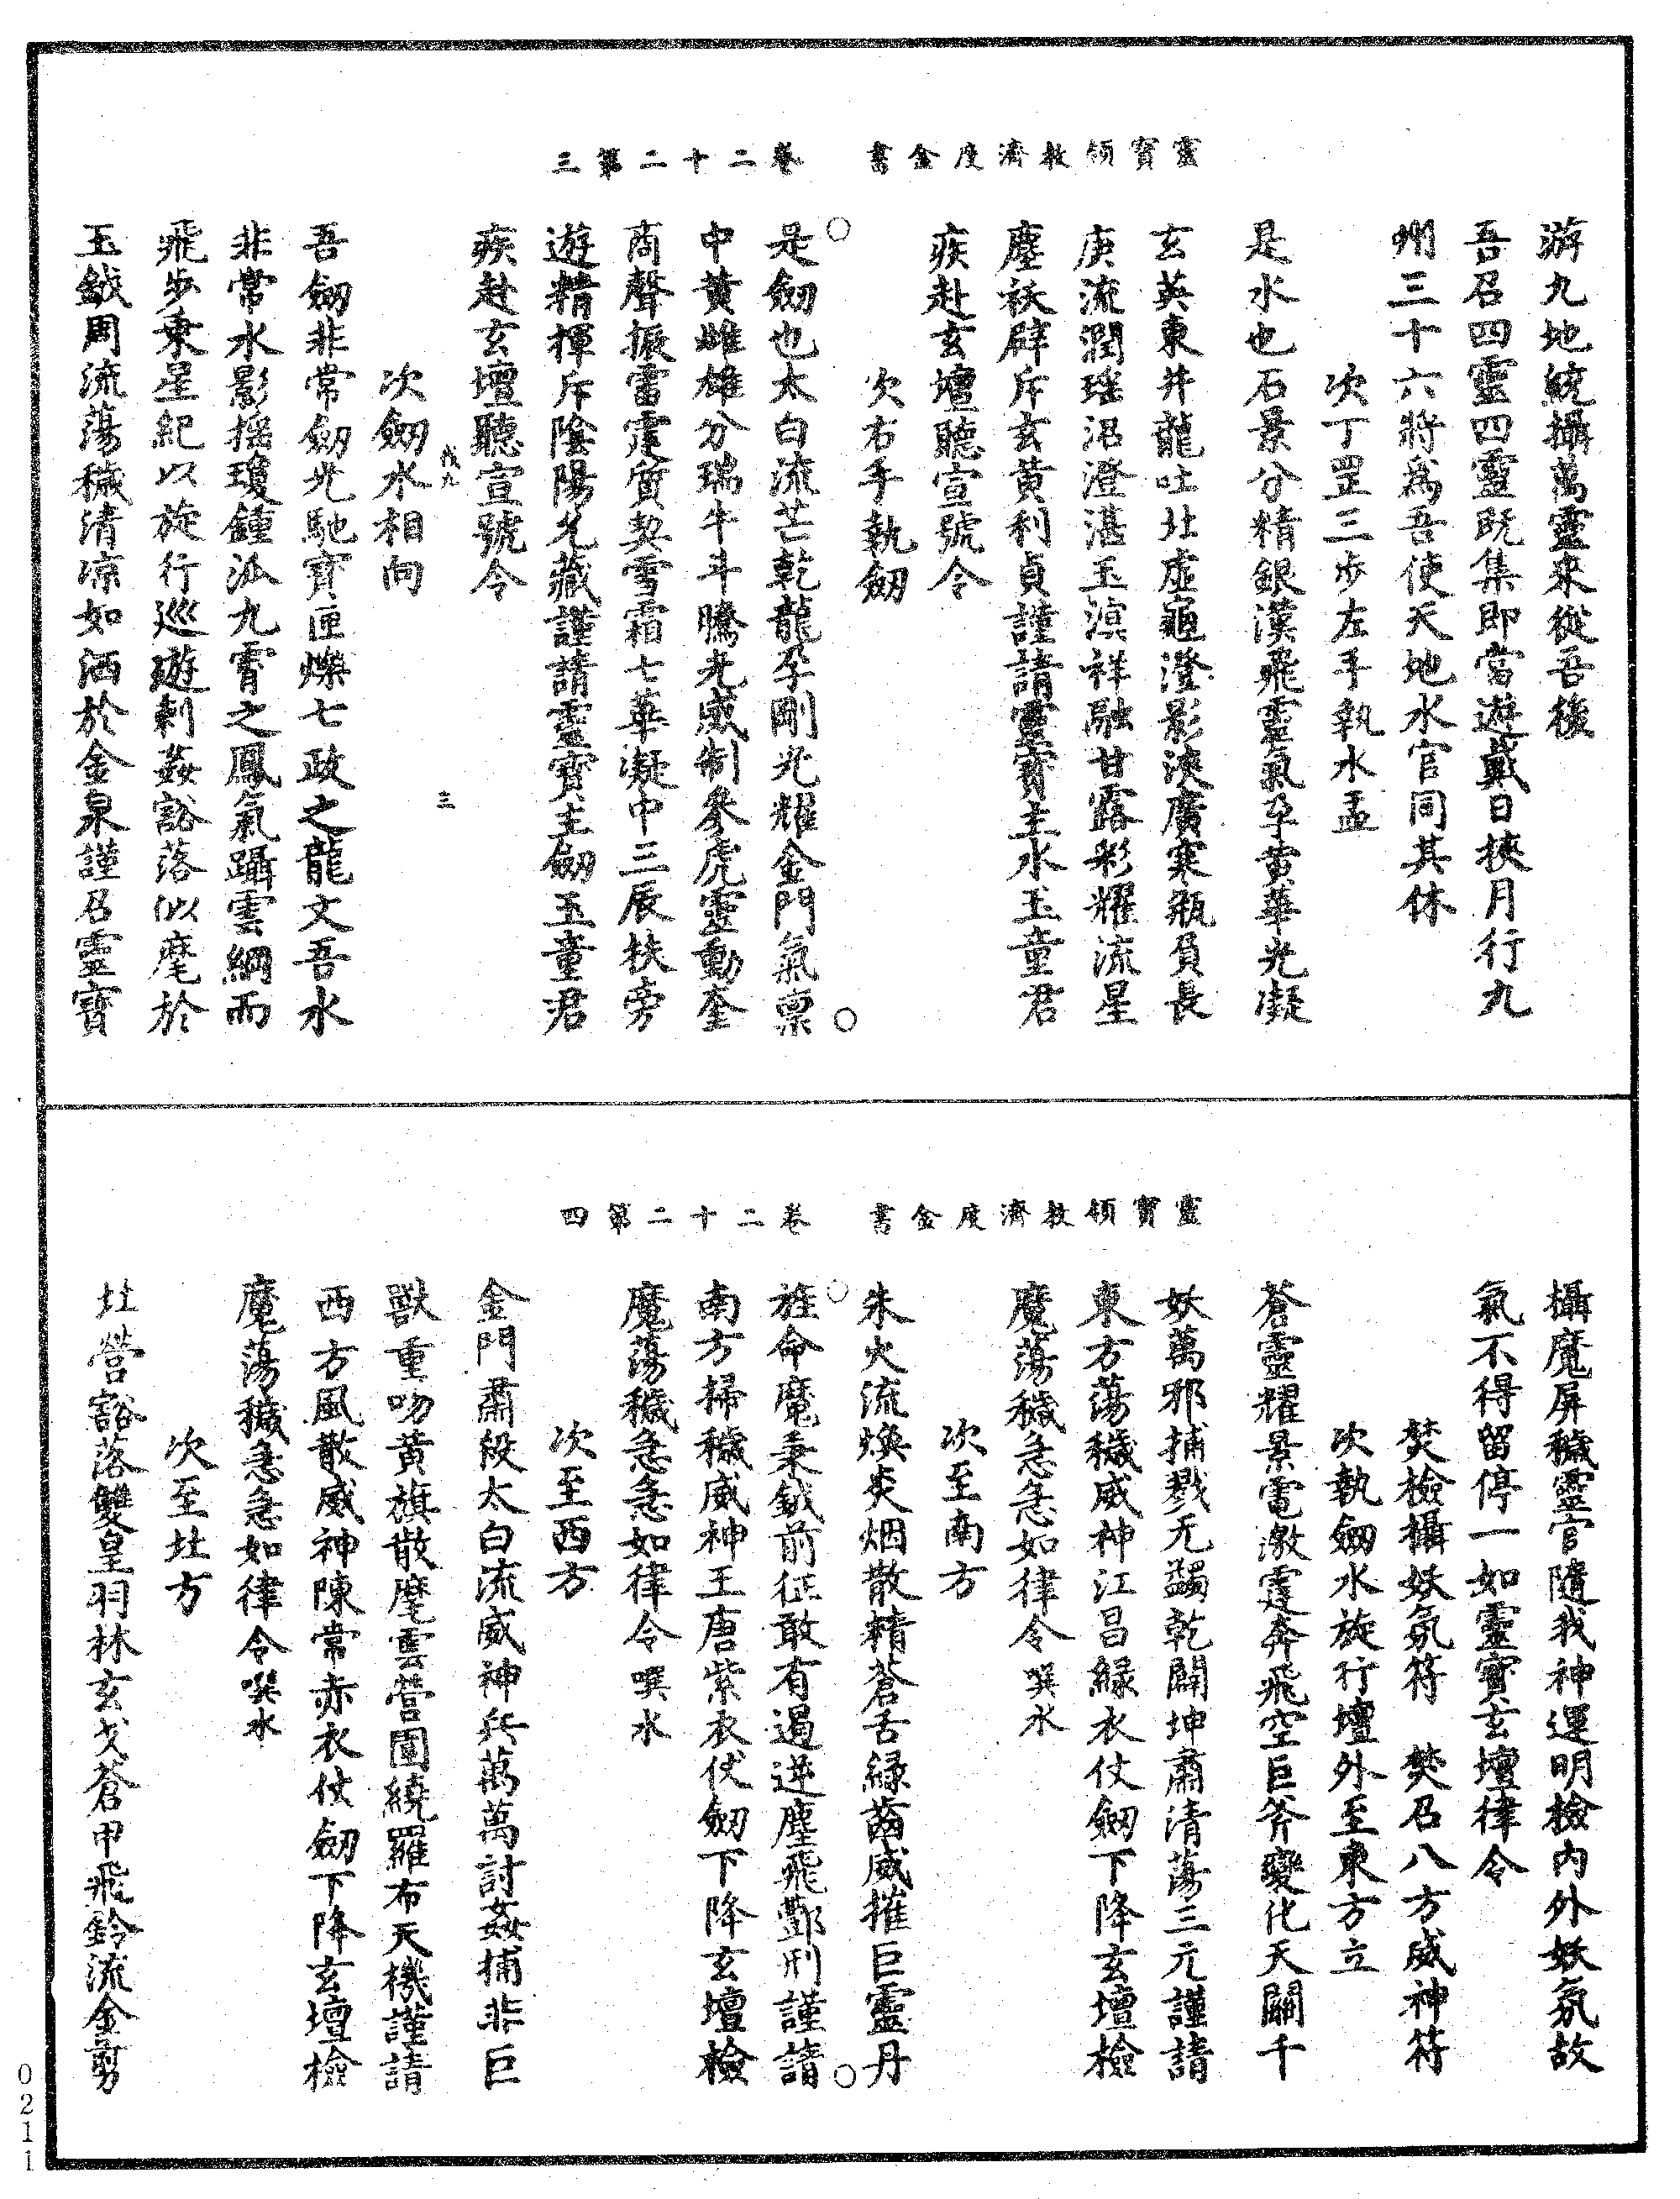 靈寶領教濟度金書　卷二十二第三
游九地統攝萬靈來從吾後
吾召四靈四靈既集即當遊戴日挾月行九
州三十六將為吾使天地水官同其休
次丁罡三步左手執水盂
是水也石景分精銀漢飛靈氣孕黃華光凝
玄英東井龍吐北虛龜澄影浹廣寒瓶負長
庚流潤瑤沼澄湛玉溟祥融甘露彩耀流星
塵袄辟斥玄黃利貞謹請靈寶主水玉童君
疾赴玄壇聽宣號令
次右手執劒
是劒也太白流芒乾龍孕剛光耀金門氣稟
中黃雌雄分瑞牛斗騰光威制參虎靈動奎
商聲振雷霆質契雪霜七華凝中三辰扶旁
遊精揮斥陰陽允藏謹請靈寶主劒玉童君
疾赴玄壇聽宣號令
次劒水相向
三
吾劒非常劒光馳寶匣爍七政之龍文吾水
非常水影搖瓊鍾汎九霄之鳳氣躡雲綱而
飛步秉星紀以旋行巡遊剌姦豁落似麾於
玉鉞周流蕩穢清凉如洒於金泉謹召靈寶
靈寶領教濟度金書　卷二十二第四
攝魔屏穢靈官隨我神運明檢內外妖氛故
氣不得留停一如靈寶玄壇律令
焚檢攝妖氛符　焚召八方威神符
次執劒水旋行壇外至東方立
蒼靈耀景電激霆奔飛空巨斧變化天關千
妖萬邪捕戮无蠲乾闢坤肅清蕩三元謹請
東方蕩穢威神江昌綠衣仗劒下降玄壇檢
魔蕩穢急急如律令噀水
次至南方
朱火流煥炎烟散精蒼舌綠齒威摧巨靈丹
旌命魔秉鉞前征敢有遏逆塵飛酆刑謹請
南方掃穢威神王唐紫衣伏劒下降玄壇檢
魔蕩穢急急如律令噀水
次至西方
金門肅殺太白流威神兵萬萬討姦捕非巨
獸重吻黃旗散麾雲營圍繞羅布天機謹請
西方風散威神陳常赤衣仗劒下降玄壇檢
魔蕩穢急急如律令噀水
次至北方
北營豁落雙皇羽林玄戈蒼甲飛鈴流金剪
0211